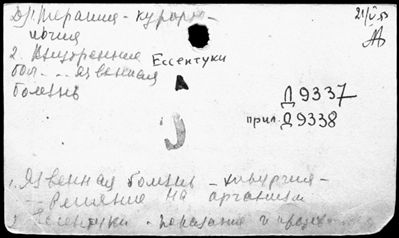 Др. Терапия - курорто-
логия
2. Внутренние
бол. - Язвенная
болезнь
Ессентуки
21/V 53
Д 9337
прил. Д 9338
1. Язвенная болезнь - хирургия -
- Влияние на организм
2. Ессентуки -